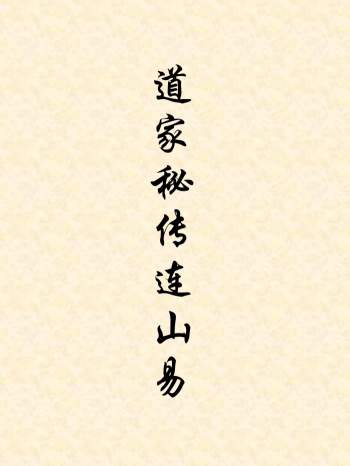 道家秘传连山易